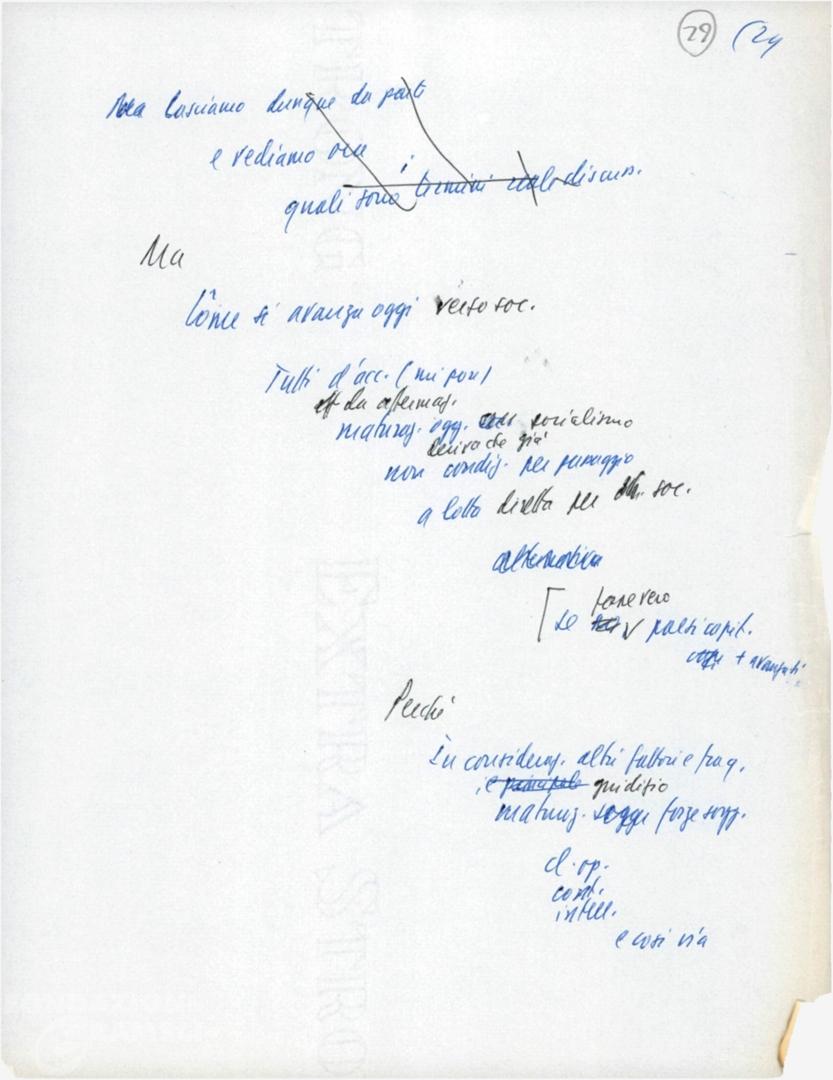 29 (24
Ma lasciamo dunque da parte
e vediamo ora
quali sono i termini discuss.
Ma
Come si avanza oggi verso soc.
Tutti d'acc. (mi pare)
da affermaz.
maturaz. ogg. socialismo
deriva che già
non condiz. per passaggio
a lotta diretta per soc.
alternativa
forse vero
se paesi capit.
+ avanzati
Perché
In consideraz. altri fattori e fra q.
e principale giudizio
maturaz. forze sogg.
cl. op.
cont.
intell.
e così via
EXTRA STRO